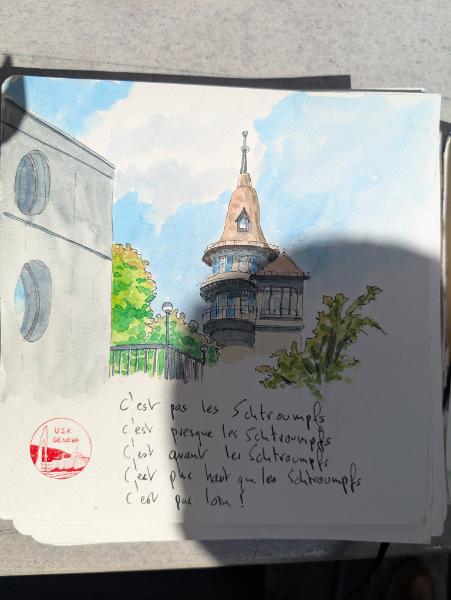 C'est pas les Schtroumpfs
c'est presque les Schtroumpfs
C'est avant les Schtroumpfs
C'est plus haut que les Schtroumpfs
c'est pas loin !
USK
GENEVA